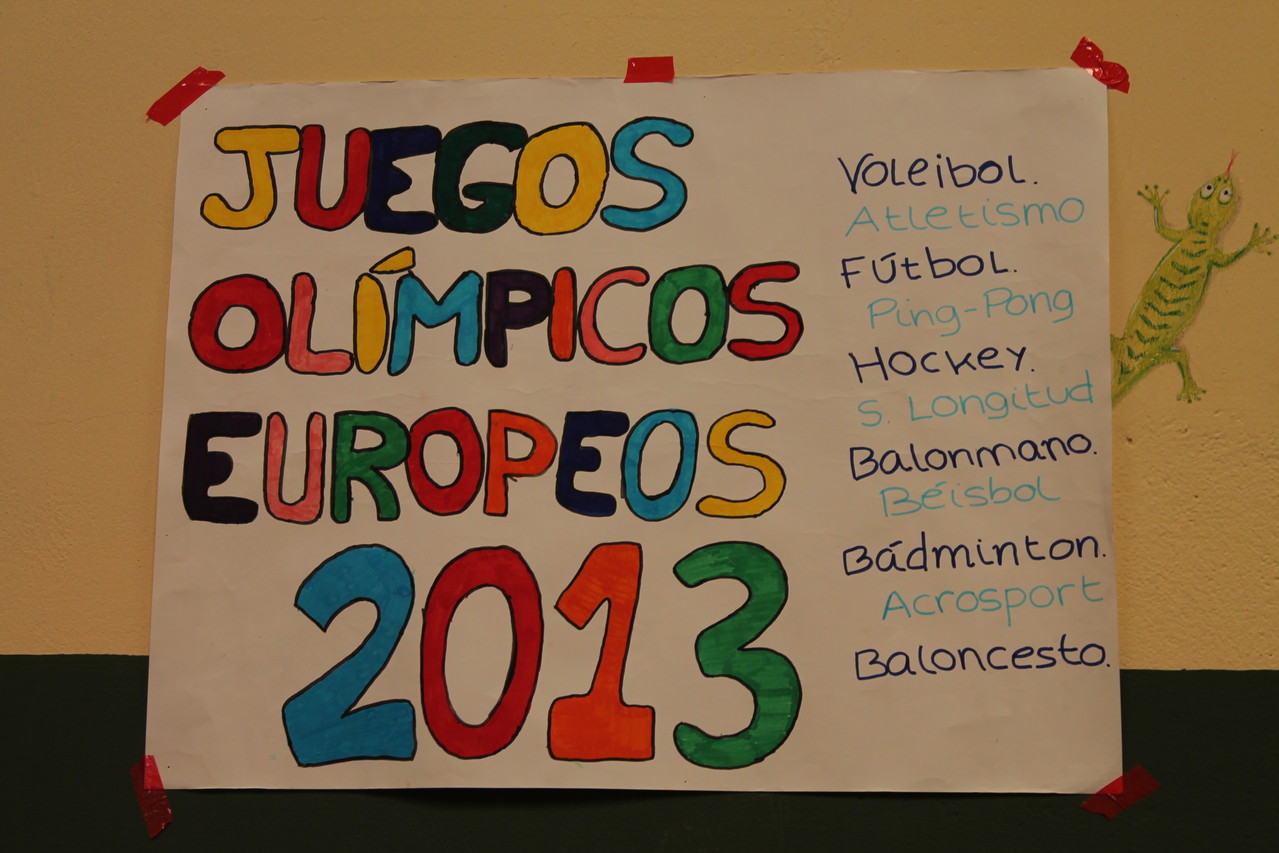 JUEGOS
OLÍMPICOS
EUROPEOS
2013
Voleibol.
Atletismo
FÚtbol.
Ping-Pong
Hockey.
S. Longitud
Balonmano.
Béisbol
Bádminton.
Acrosport
Baloncesto.